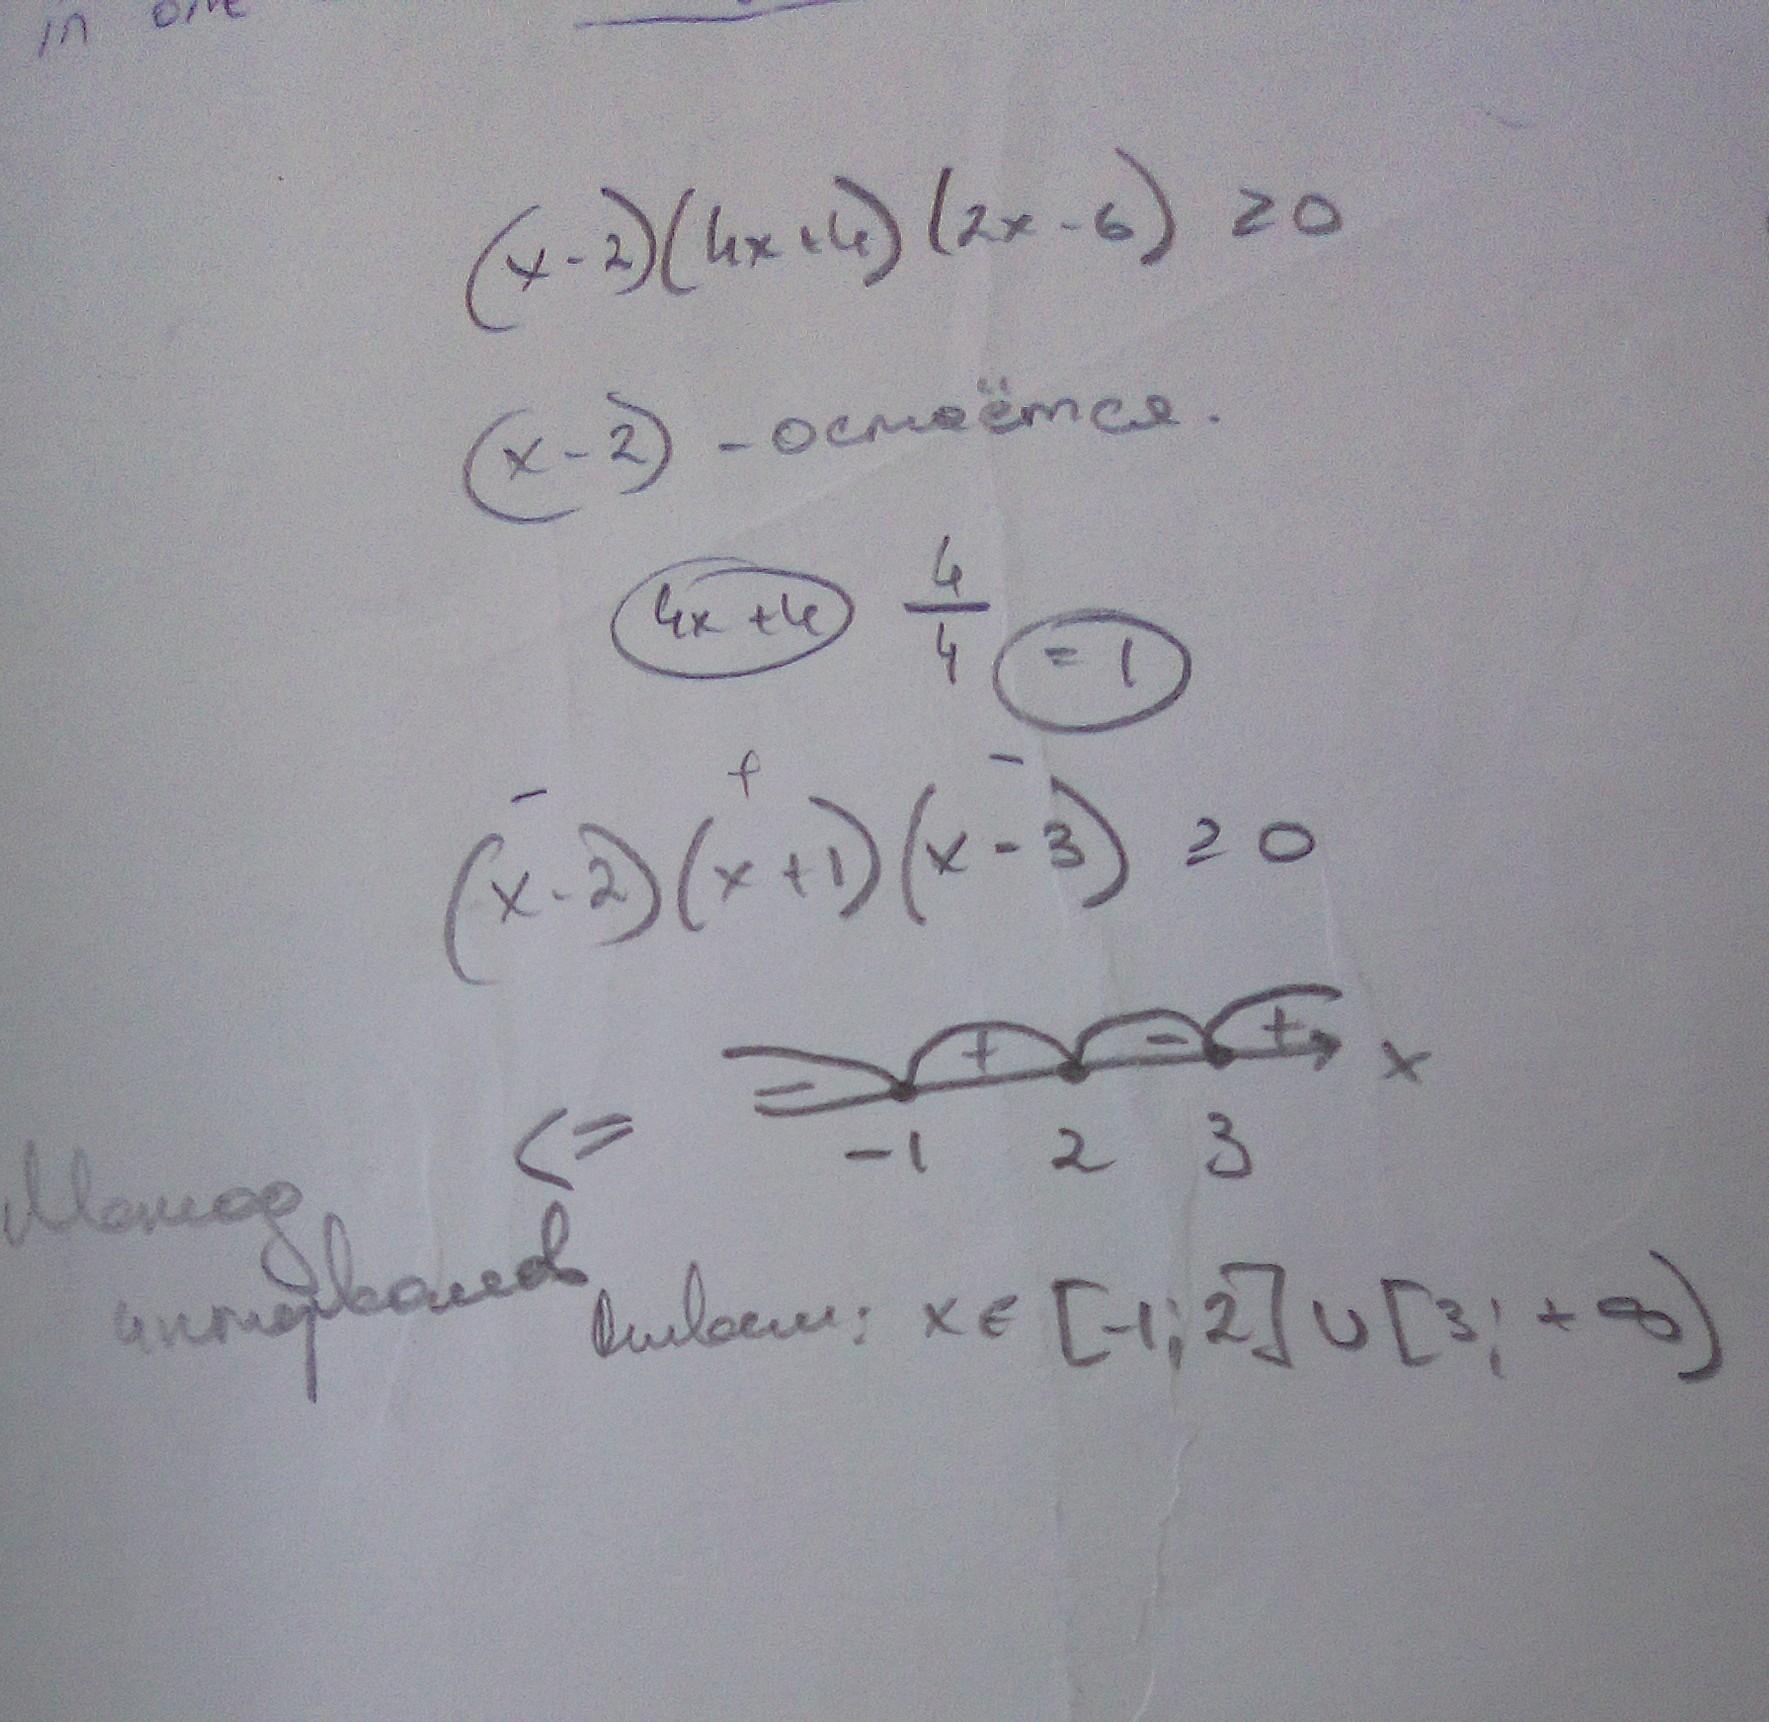 in one
(x-2)(4x+4)(2x-6) ≥0
(x-2) - остаётся.
4x+4 4/4 = 1
- + -
(x-2)(x+1)(x-3) ≥ 0
- + - + x
<= -1 2 3
Метод
интервалов
Ответ: x∈[-1;2]∪[3;+∞)